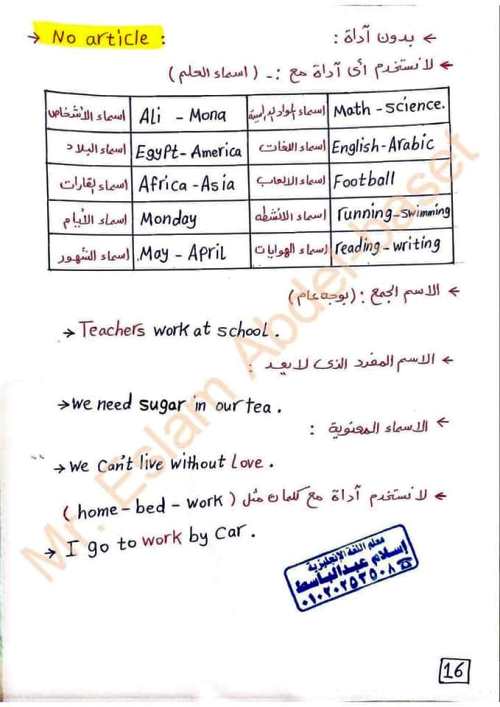 → No article : ← بدون أداة :
← لا نستخدم أى أداة مع :ـ ( اسماء العلم )
اسماء الأشخاص Ali - Mona اسماء المواد الدراسية Math - science.
اسماء البلاد Egypt - America اسماء اللغات English-Arabic
اسماء القارات Africa - Asia اسماء الالعاب Football
اسماء الأيام Monday اسماء الأنشطه running-swimming
اسماء الشهور May - April اسماء الهوايات reading - writing
← الاسم الجمع : (بوجه عام)
→ Teachers work at school .
← الاسم المفرد الذى لا يعد :
→ we need sugar in our tea .
← الاسماء المعنوية :
→ we can't live without love .
← لا نستخدم أداة مع كلمات مثل ( home - bed - work )
→ I go to work by car .
معلم اللغة الإنجليزية
إسلام عبدالباسط
٠١٠٢٠٢٥٣٥٠٨
Mr. Eslam Abdel-baset
16